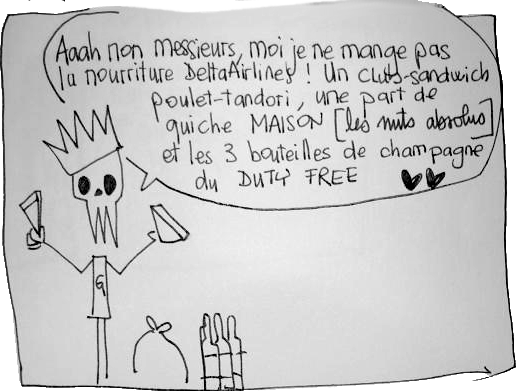 Aaah non messieurs, moi je ne mange pas
la nourriture DeltaAirlines ! Un club-sandwich
poulet-tandori, une part de
quiche MAISON [les nuts absolus]
et les 3 bouteilles de champagne
du DUTY FREE
G